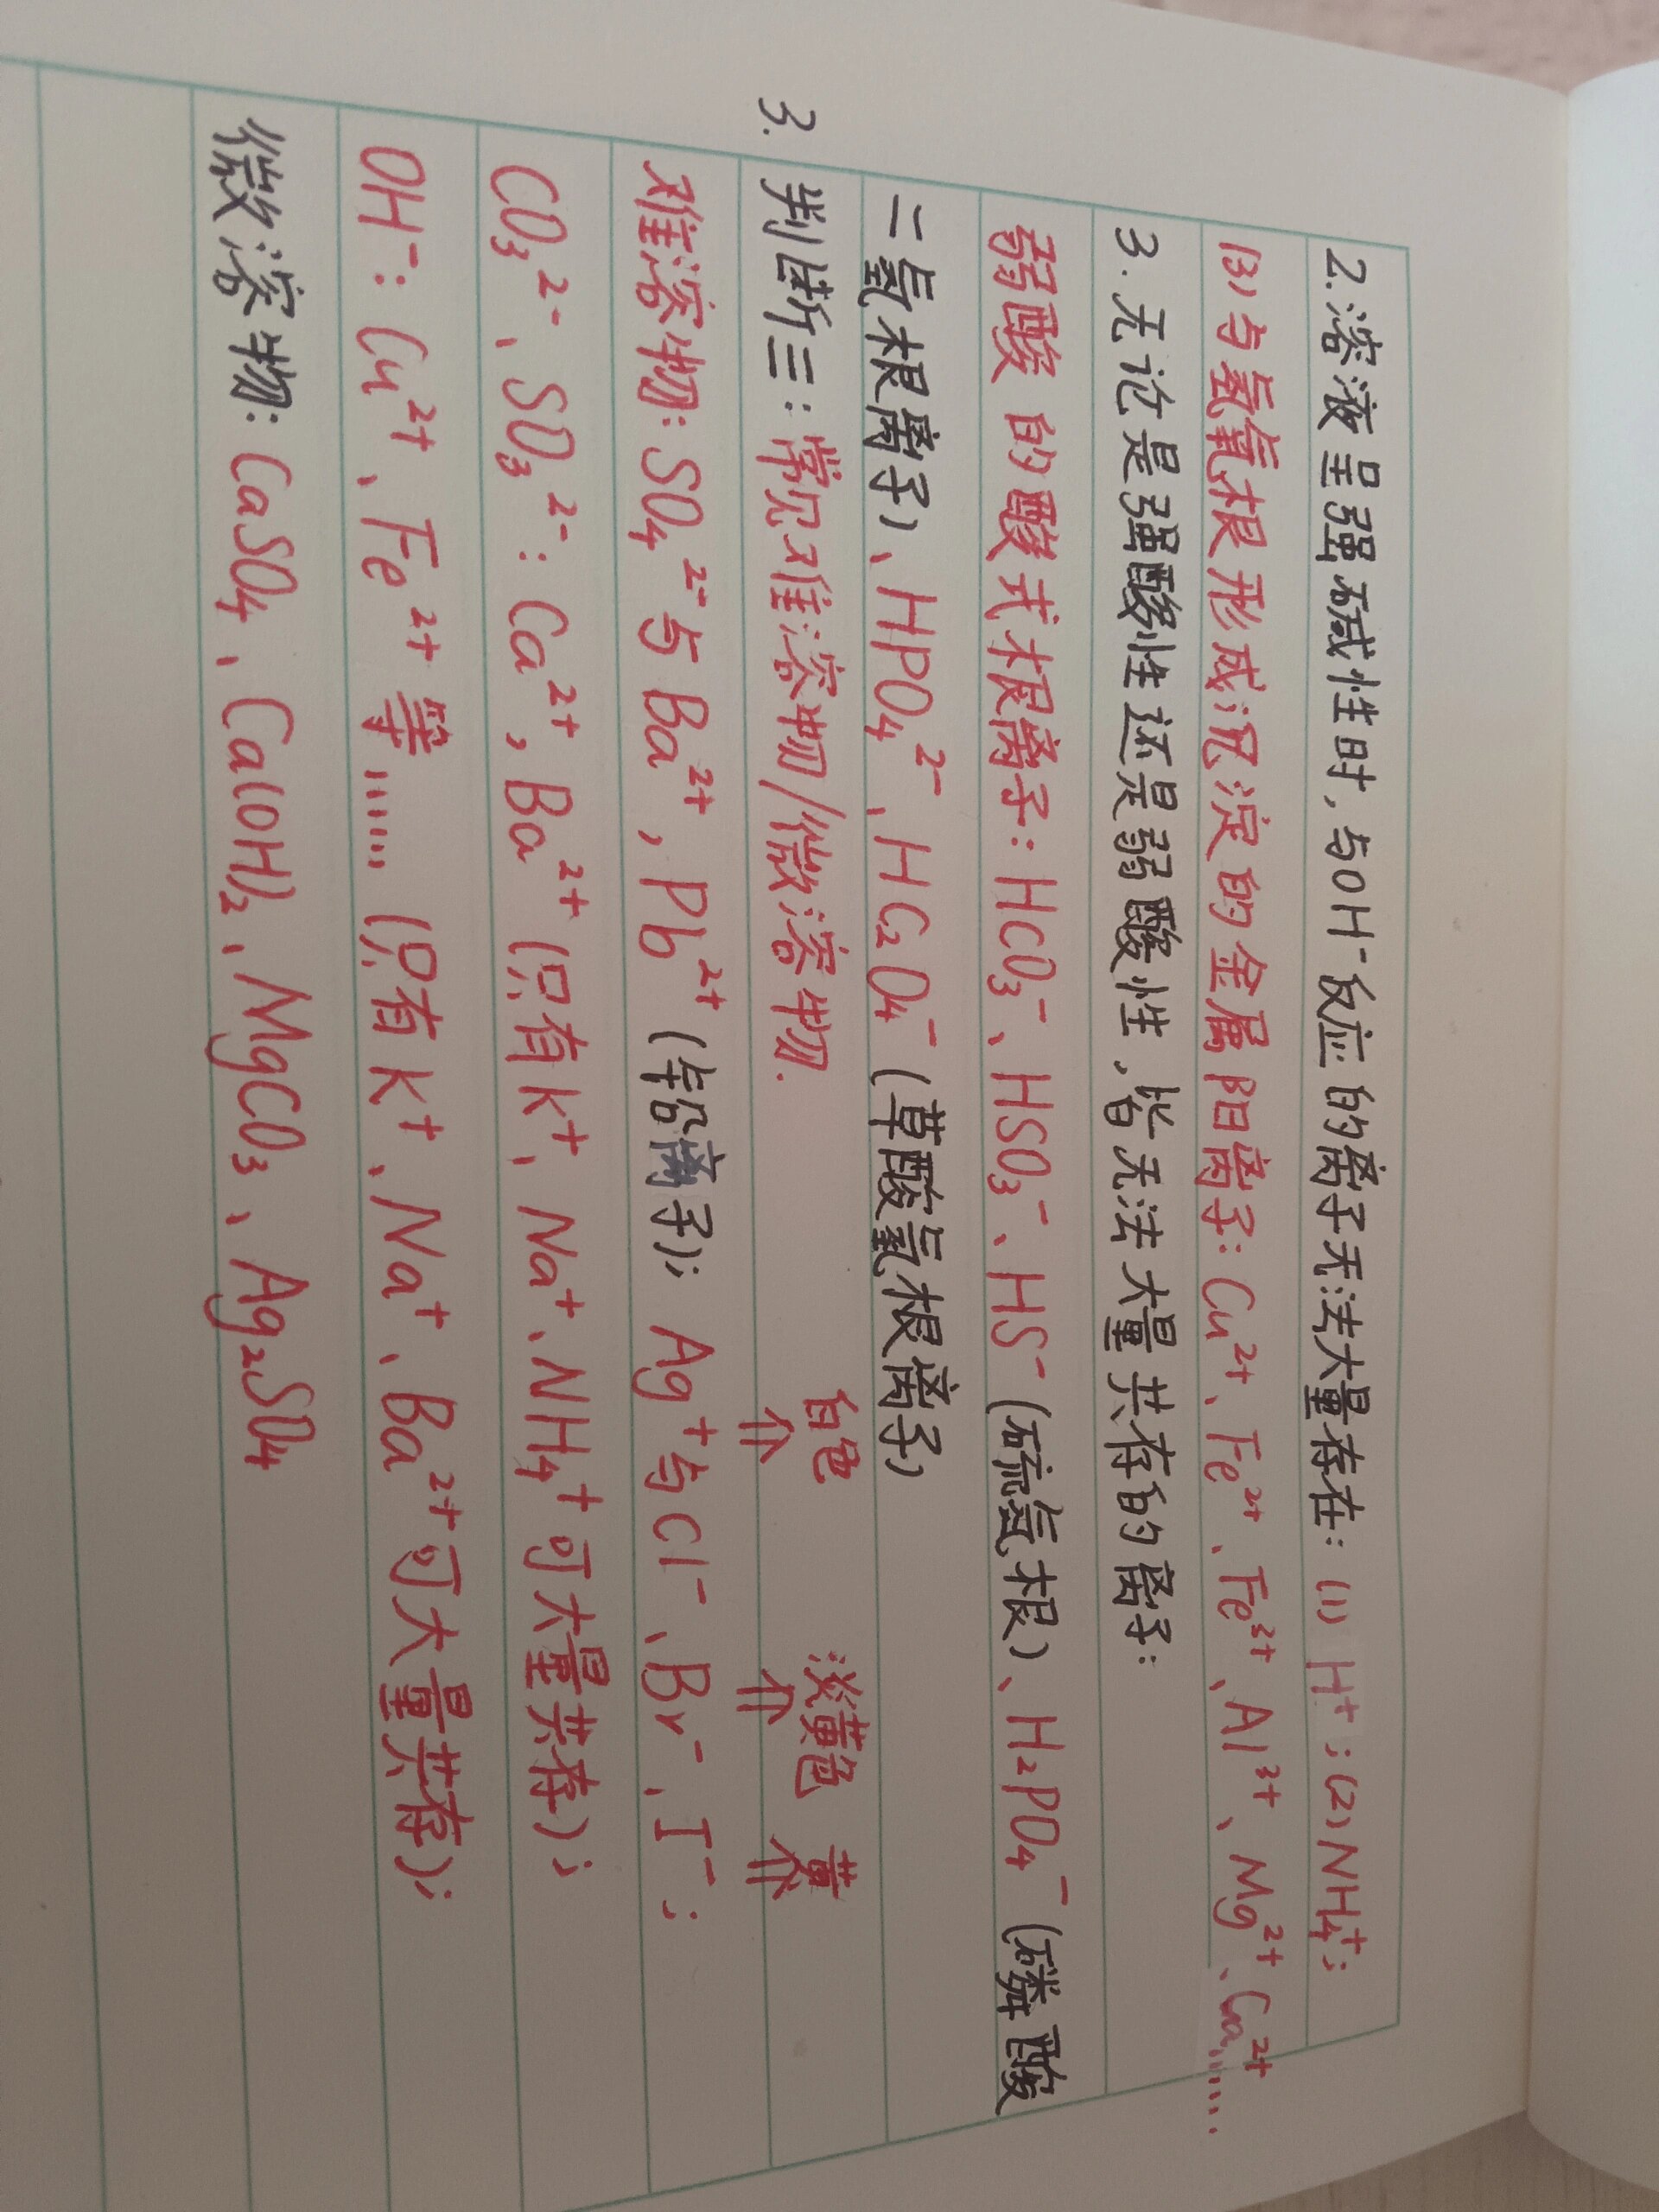 2.溶液呈强碱性时，与OH⁻反应的离子无法大量存在：(1) H⁺；(2) NH₄⁺；
(3)与氢氧根形成沉淀的金属阳离子：Cu²⁺、Fe²⁺、Fe³⁺、Al³⁺、Mg²⁺、Ca²⁺……
3.无论是强酸性还是弱酸性，皆无法大量共存的离子：
弱酸的酸式根离子：HCO₃⁻、HSO₃⁻、HS⁻(硫氢根)、H₂PO₄⁻(磷酸
二氢根离子)、HPO₄²⁻、HC₂O₄⁻(草酸氢根离子)
3.判断三：常见难溶物/微溶物.
白色 淡黄色 黄
⇑ ⇑ ⇑
难溶物：SO₄²⁻与Ba²⁺，Pb²⁺(铅离子)；Ag⁺与Cl⁻、Br⁻、I⁻；
CO₃²⁻、SO₃²⁻：Ca²⁺，Ba²⁺(只有K⁺、Na⁺、NH₄⁺可大量共存)；
OH⁻：Cu²⁺、Fe²⁺等……(只有K⁺、Na⁺、Ba²⁺可大量共存)；
微溶物：CaSO₄、Ca(OH)₂、MgCO₃、Ag₂SO₄